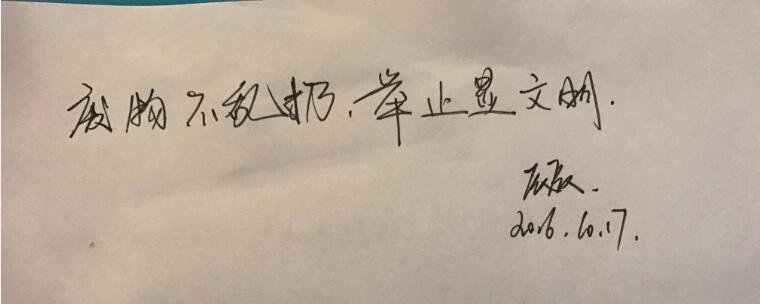 废物不乱扔、举止显文明.
2016.10.17.